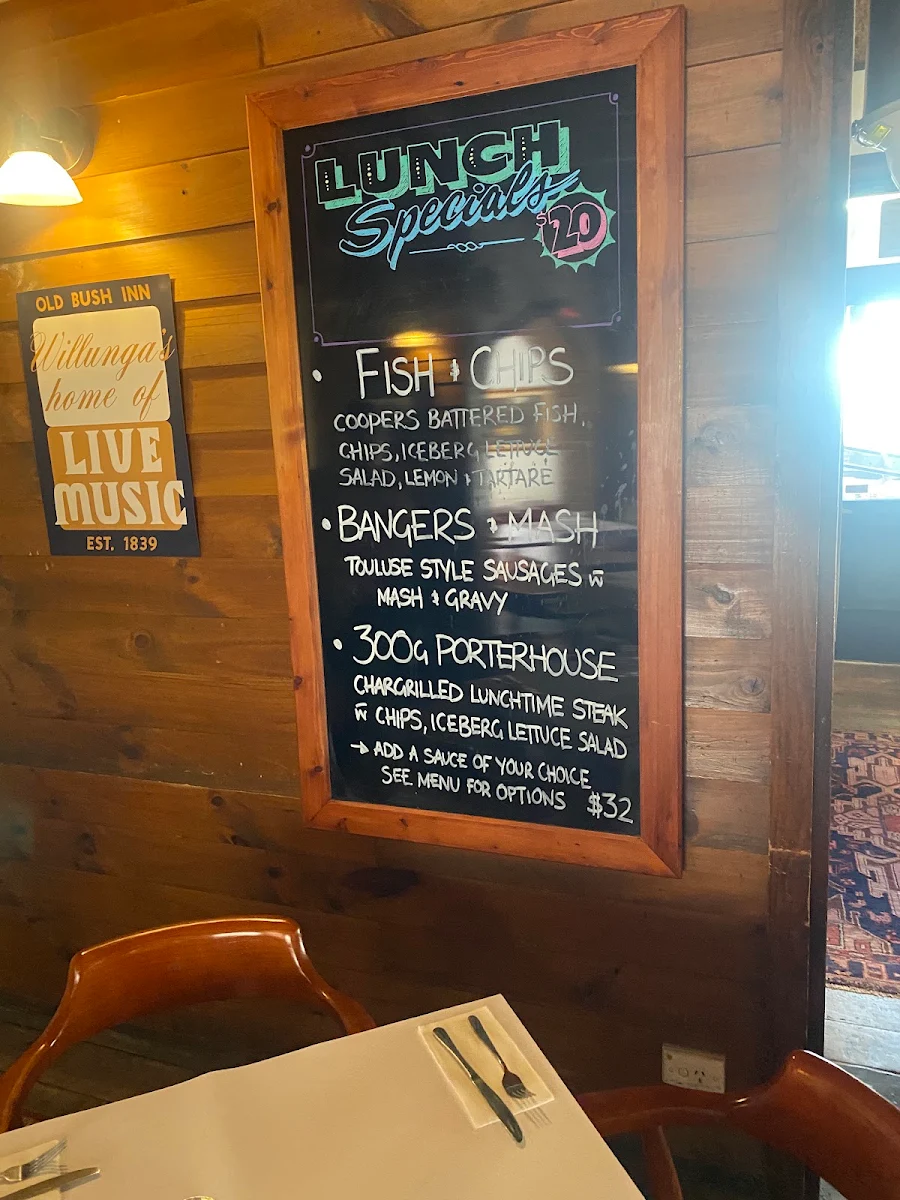 OLD BUSH INN
Willunga's
home of
LIVE
MUSIC
EST. 1839
LUNCH
Specials
$20
• FISH & CHIPS
COOPERS BATTERED FISH,
CHIPS, ICEBERG LETTUCE
SALAD, LEMON & TARTARE
• BANGERS & MASH
TOULUSE STYLE SAUSAGES w
MASH & GRAVY
• 300G PORTERHOUSE
CHARGRILLED LUNCHTIME STEAK
w CHIPS, ICEBERG LETTUCE SALAD
→ ADD A SAUCE OF YOUR CHOICE
SEE MENU FOR OPTIONS $32